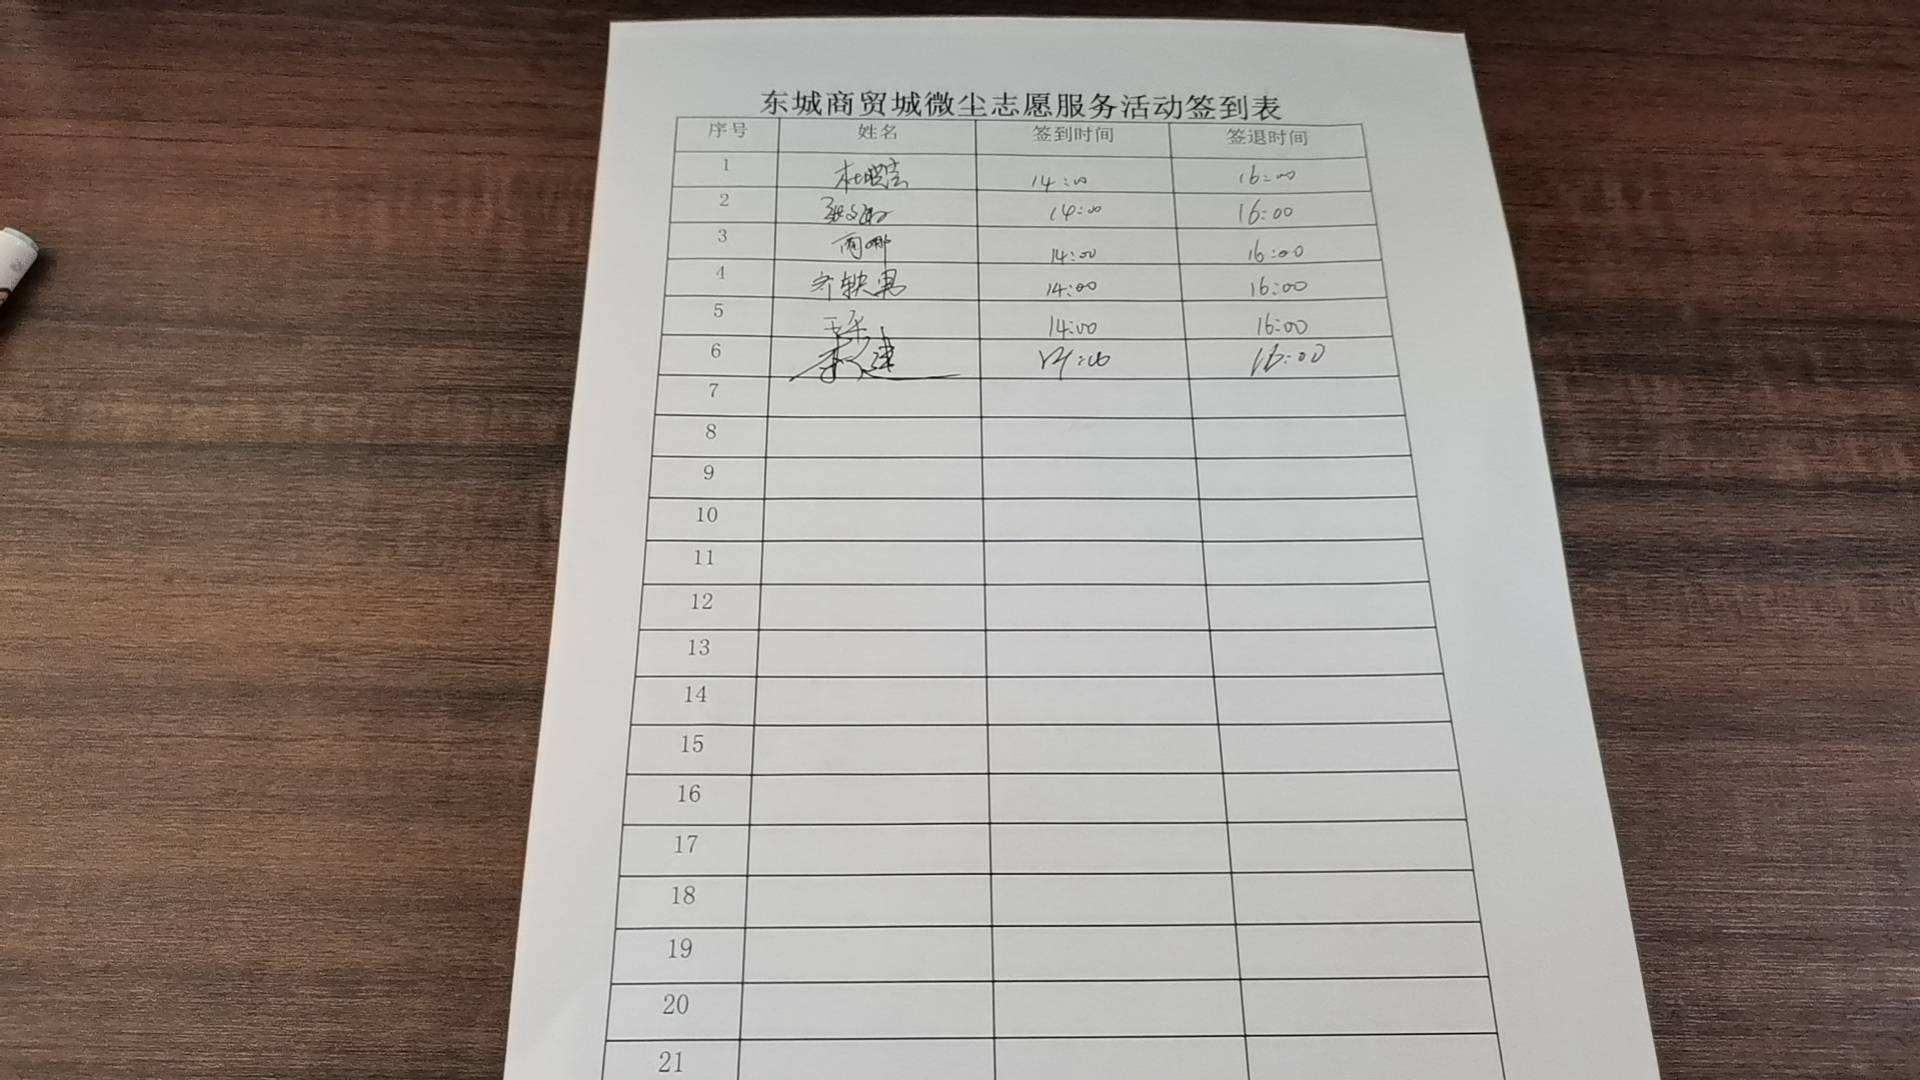 东城商贸城微尘志愿服务活动签到表
序号 姓名 签到时间 签退时间
1 14:00 16:00
2 14:00 16:00
3 商娜 14:00 16:00
4 14:00 16:00
5 14:00 16:00
6 李建 14:00 16:00
7
8
9
10
11
12
13
14
15
16
17
18
19
20
21